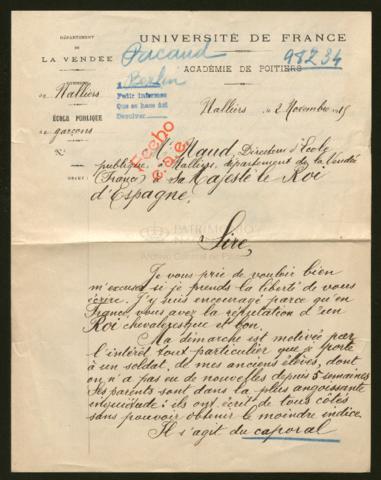 DÉPARTEMENT
DE
LA VENDÉE
UNIVERSITÉ DE FRANCE
Picaud
98234
ACADÉMIE DE POITIERS
COMMUNE
Berlin
de Nalliers
Pedir informes
Que se hace así
Devolver
Nalliers, le 2 Novembre 1915
ÉCOLE PUBLIQUE
de garçons
Hecho
N°
M. Naud, Directeur d'École
publique à Nalliers, département de la Vendée
OBJET :
(France) à Sa Majesté le Roi
d'Espagne.
Sire,
Je vous prie de vouloir bien
m'excuser si je prends la liberté de vous
écrire. J'y suis encouragé parce qu'en
France vous avez la réputation d'un
Roi chevaleresque et bon.
Ma démarche est motivée par
l'intérêt tout particulier que je porte
à un soldat, de mes anciens élèves, dont
on n'a pas eu de nouvelles depuis 5 semaines.
Ses parents sont dans la plus angoissante
inquiétude : ils ont écrit de tous côtés
sans pouvoir obtenir le moindre indice.
Il s'agit du caporal